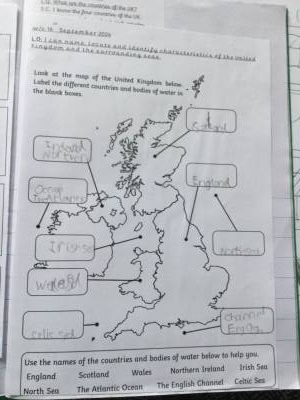 L.Q. What are the countries of the UK?
S.C. I know the four countries of the UK.
16 September 2024
L.O: I can name, locate and identify characteristics of the United
Kingdom and the surrounding seas.
Look at the map of the United Kingdom below.
Label the different countries and bodies of water in
the blank boxes.
Ireland
Northern
England
Ocean
Irish sea
North sea
Wales
Channel
Celtic sea
Use the names of the countries and bodies of water below to help you.
England Scotland Wales Northern Ireland Irish Sea
North Sea The Atlantic Ocean The English Channel Celtic Sea